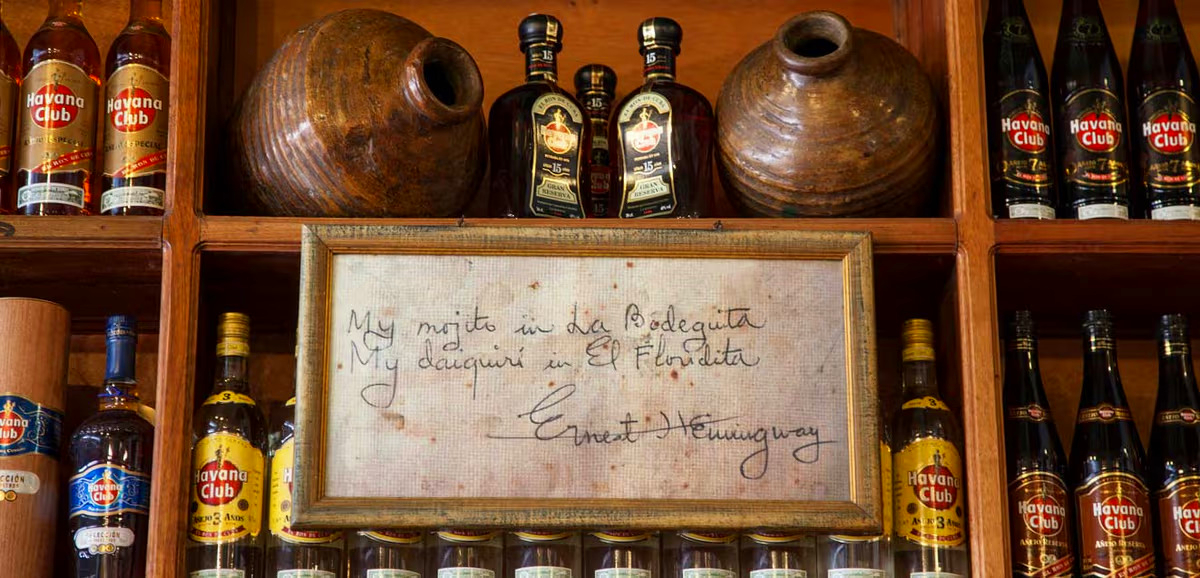 Havana
Club
Havana
Club
15
15
15
GRAN
RESERVA
15
GRAN
RESERVA
Havana
Club
Havana
Club
Havana
Club
My mojito in La Bodeguita
My daiquirí in El Floridita
Ernest Hemingway
Club
Havana
Club
Havana
Club
AÑEJO 3 AÑOS
3
3
Havana
Club
AÑEJO 3 AÑOS
Havana
Club
AÑEJO RESERVA
Havana
Club
AÑEJO RESERVA